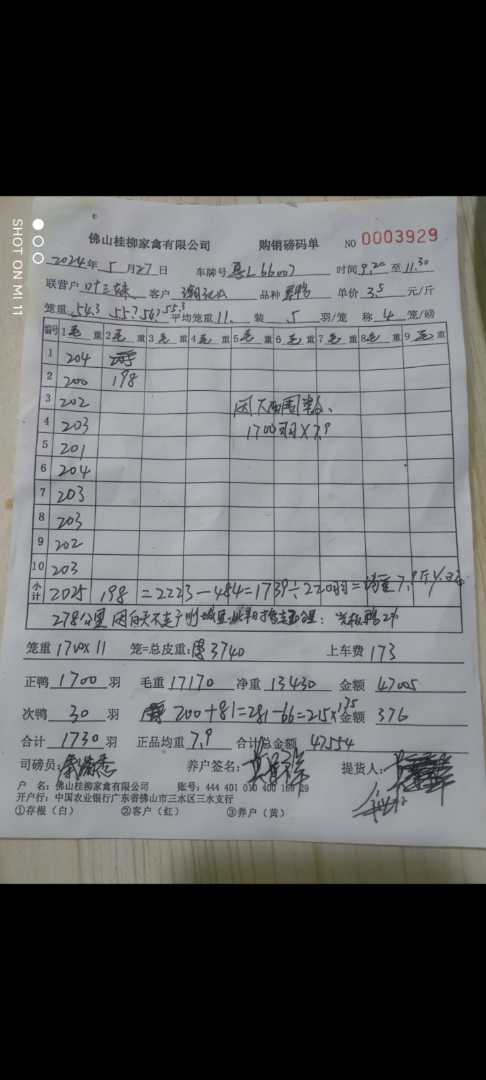 SHOT ON MI 11
佛山桂柳家禽有限公司 购销磅码单 NO 0003929
2024年 5 月 27 日 车牌号 L66007 时间 9.20 至 11.30
联营户 叶三妹 客户 品种 单价 3.5 元/斤
笼重 54.3 55.7 56.7 55.3 平均笼重 11. 装 5 羽/笼 称 4 笼/磅
编号 1毛重 2毛重 3毛重 4毛重 5毛重 6毛重 7毛重 8毛重 9毛重
1 204
2 200 198
3 202
4 203 1700羽×7.9
5 201
6 204
7 203
8 203
9 202
10 203
小计 2025 198 =2223-484=1739÷220羽= 7.9斤
278公里
笼重 1700×11 笼=总皮重: 3740 上车费 173
正鸭 1700 羽 毛重 17170 净重 13430 金额 47005
次鸭 30 羽 200+81=281-66=215×1.75 金额 376
合计 1730 羽 正品均重 7.9 合计总金额 47554
司磅员: 养户签名: 提货人:
户 名: 佛山桂柳家禽有限公司 账号: 444 401 010 400 160 29
开户行: 中国农业银行广东省佛山市三水区三水支行
①存根（白） ②客户（红） ③养户（黄）